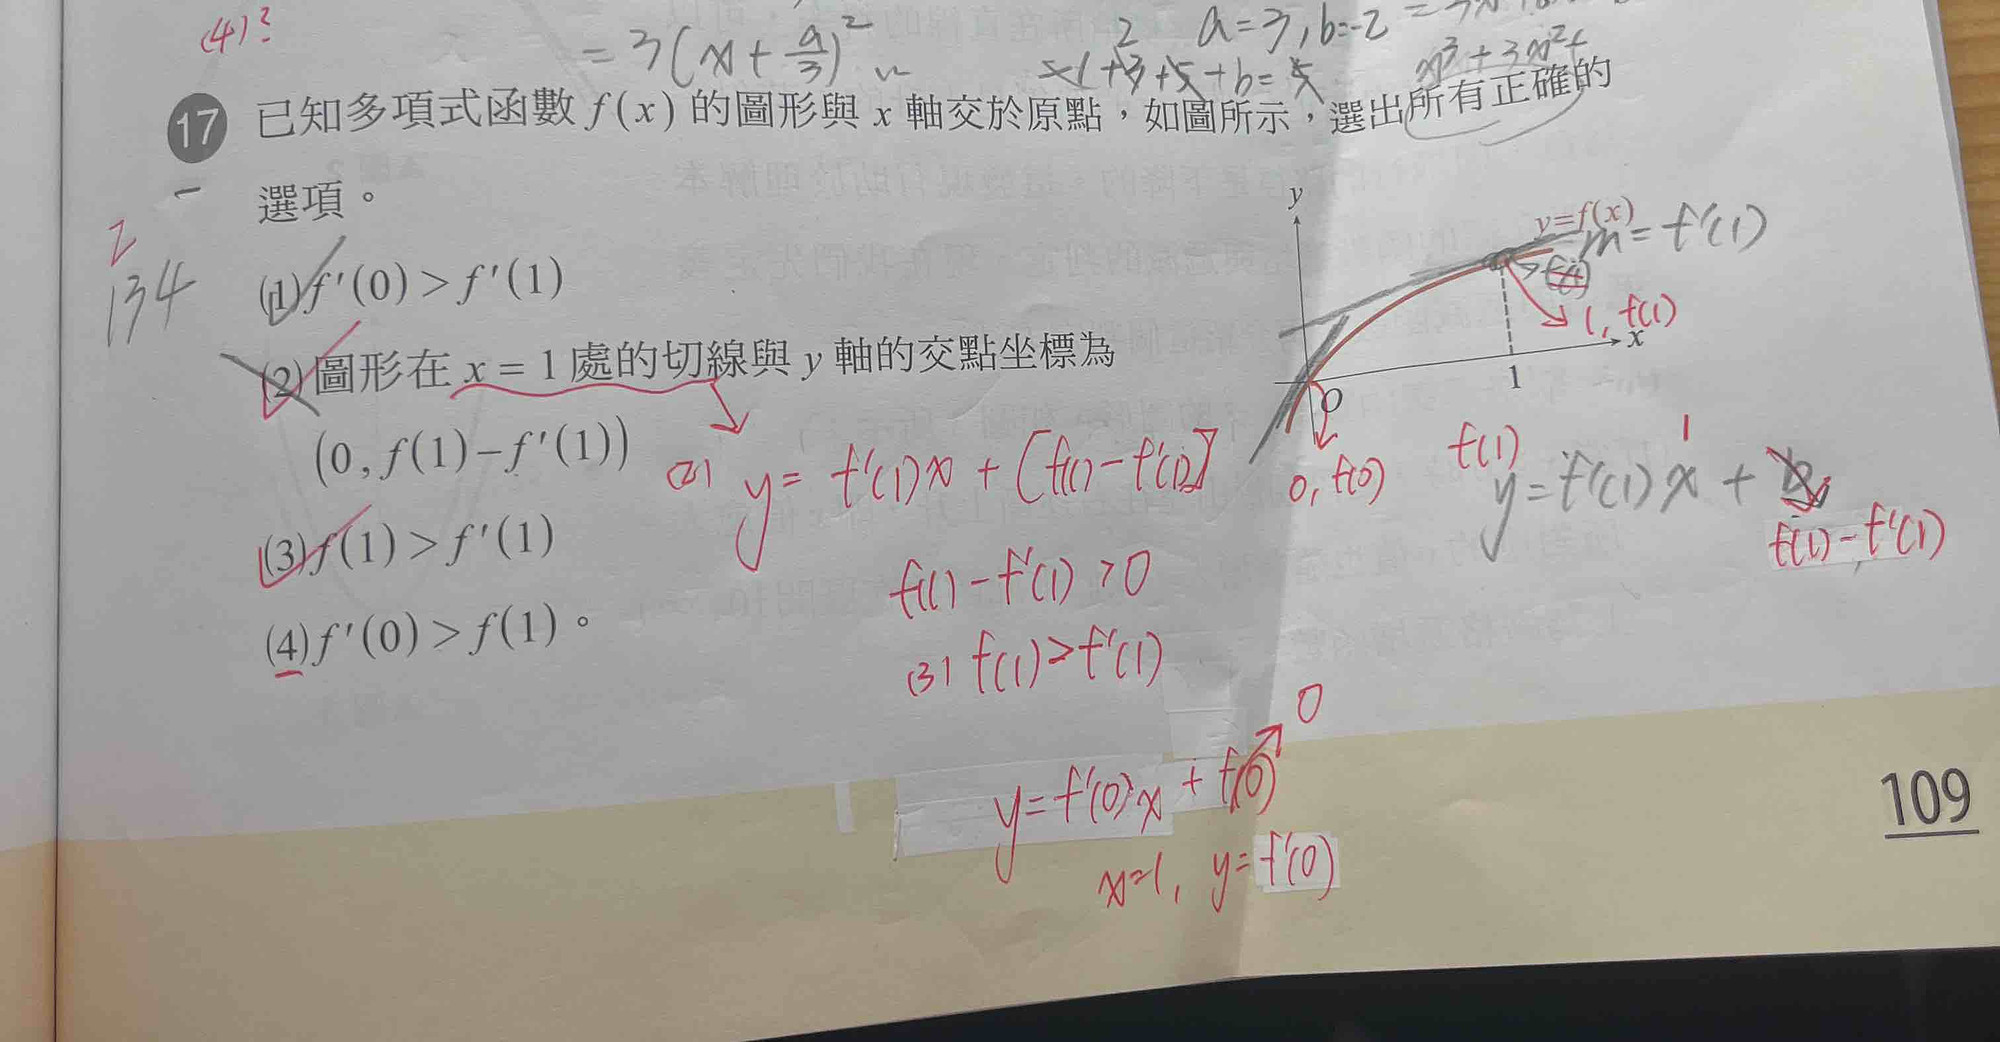 (4)?
= 3(x + a/3)²
2 a=3, b=-2
-1+3+5+b=5
x³+3x²+
17 已知多項式函數 f(x) 的圖形與 x 軸交於原點，如圖所示，選出所有正確的
選項。
2
134
(1) f′(0) > f′(1)
(2) 圖形在 x = 1 處的切線與 y 軸的交點坐標為
(0, f(1) − f′(1))
(3) f(1) > f′(1)
(4) f′(0) > f(1)。
y
y=f(x)
m = f'(1)
1, f(1)
x
O
1
0, f(0)
f(1) 1
y = f'(1) x +
f(1) - f'(1)
(2) y = f'(1)x + [f(1) - f'(1)]
f(1) - f'(1) > 0
(3) f(1) > f'(1)
0
y = f'(0)x + f(0)
x=1, y= f'(0)
109